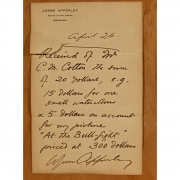 April 26
Received of Mr
C M. Cotton the sum
of 20 dollars, e.g.
15 dollars for one
small watercolour
x 5 dollars on account
for my picture
"At the Bull-fight"
priced at 300 dollars